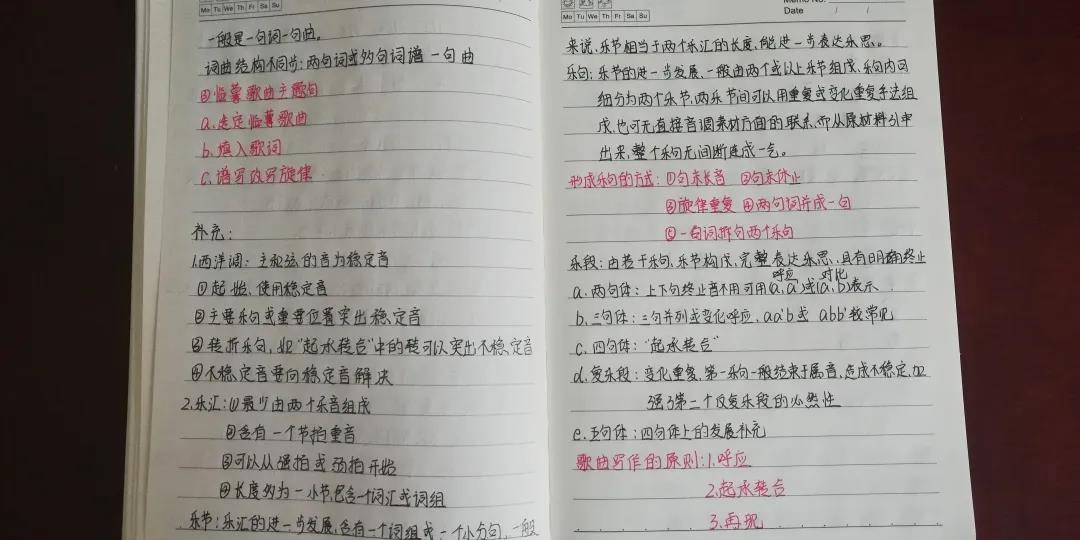 Mo Tu We Th Fr Sa Su
一般是一句词一句曲。
词曲结构不同步:两句词或多句词谱一句曲
③临摹歌曲主题句
a.选定临摹歌曲
b.填入歌词
c.谱写改写旋律
补充:
1.西洋调:主和弦的音为稳定音
①起始、使用稳定音
②主要乐句或重要位置突出稳定音
③转折乐句,如“起承转合”中的转可以突出不稳定音
④不稳定音要向稳定音解决
2.乐汇:①最少由两个乐音组成
②含有一个节拍重音
③可以从强拍或弱拍开始
④长度约为一小节,包含一个词汇或词组
乐节:乐汇的进一步发展,含有一个词组或一个小分句,一般
Memo No.
Mo Tu We Th Fr Sa Su
Date / /
来说,乐节相当于两个乐汇的长度,能进一步表达乐思。
乐句:乐节的进一步发展、一般由两个或以上乐节组成、乐句内可
细分为两个乐节,两乐节间可以用重复或变化重复手法组
成,也可无直接音调素材方面的联系,而从原材料引申
出来,整个乐句无间断连成一气。
形成乐句的方式:①句末长音 ②句末休止
③旋律重复 ④两句词并成一句
⑤一句词拆句两个乐句
乐段:由若干乐句,乐节构成,完整表达乐思、具有明确终止
呼应 对比
a.两句体:上下句终止音不用可用(a,a')或(a,b)表示
b.三句体:三句并列或变化呼应,aa'b或 abb'较常见
c.四句体:“起承转合”
d.复乐段:变化重复,第一乐句一般结束于属音,造成不稳定,加
强了第二个反复乐段的必然性
e.五句体:四句体上的发展补充
歌曲写作的原则:1.呼应
2.起承转合
3.再现